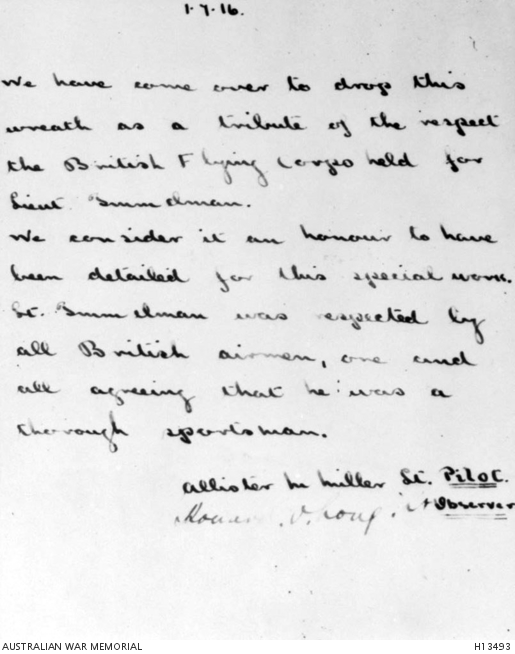 1.7.16.
We have come over to drop this
wreath as a tribute of the respect
the British Flying Corps held for
Lieut. Immelman.
We consider it an honour to have
been detailed for this special work.
Lt. Immelman was respected by
all British airmen, one and
all agreeing that he was a
thorough sportsman.
Allister M Miller Lt. Pilot.
Howard O. Long Lt Observer
AUSTRALIAN WAR MEMORIAL H13493